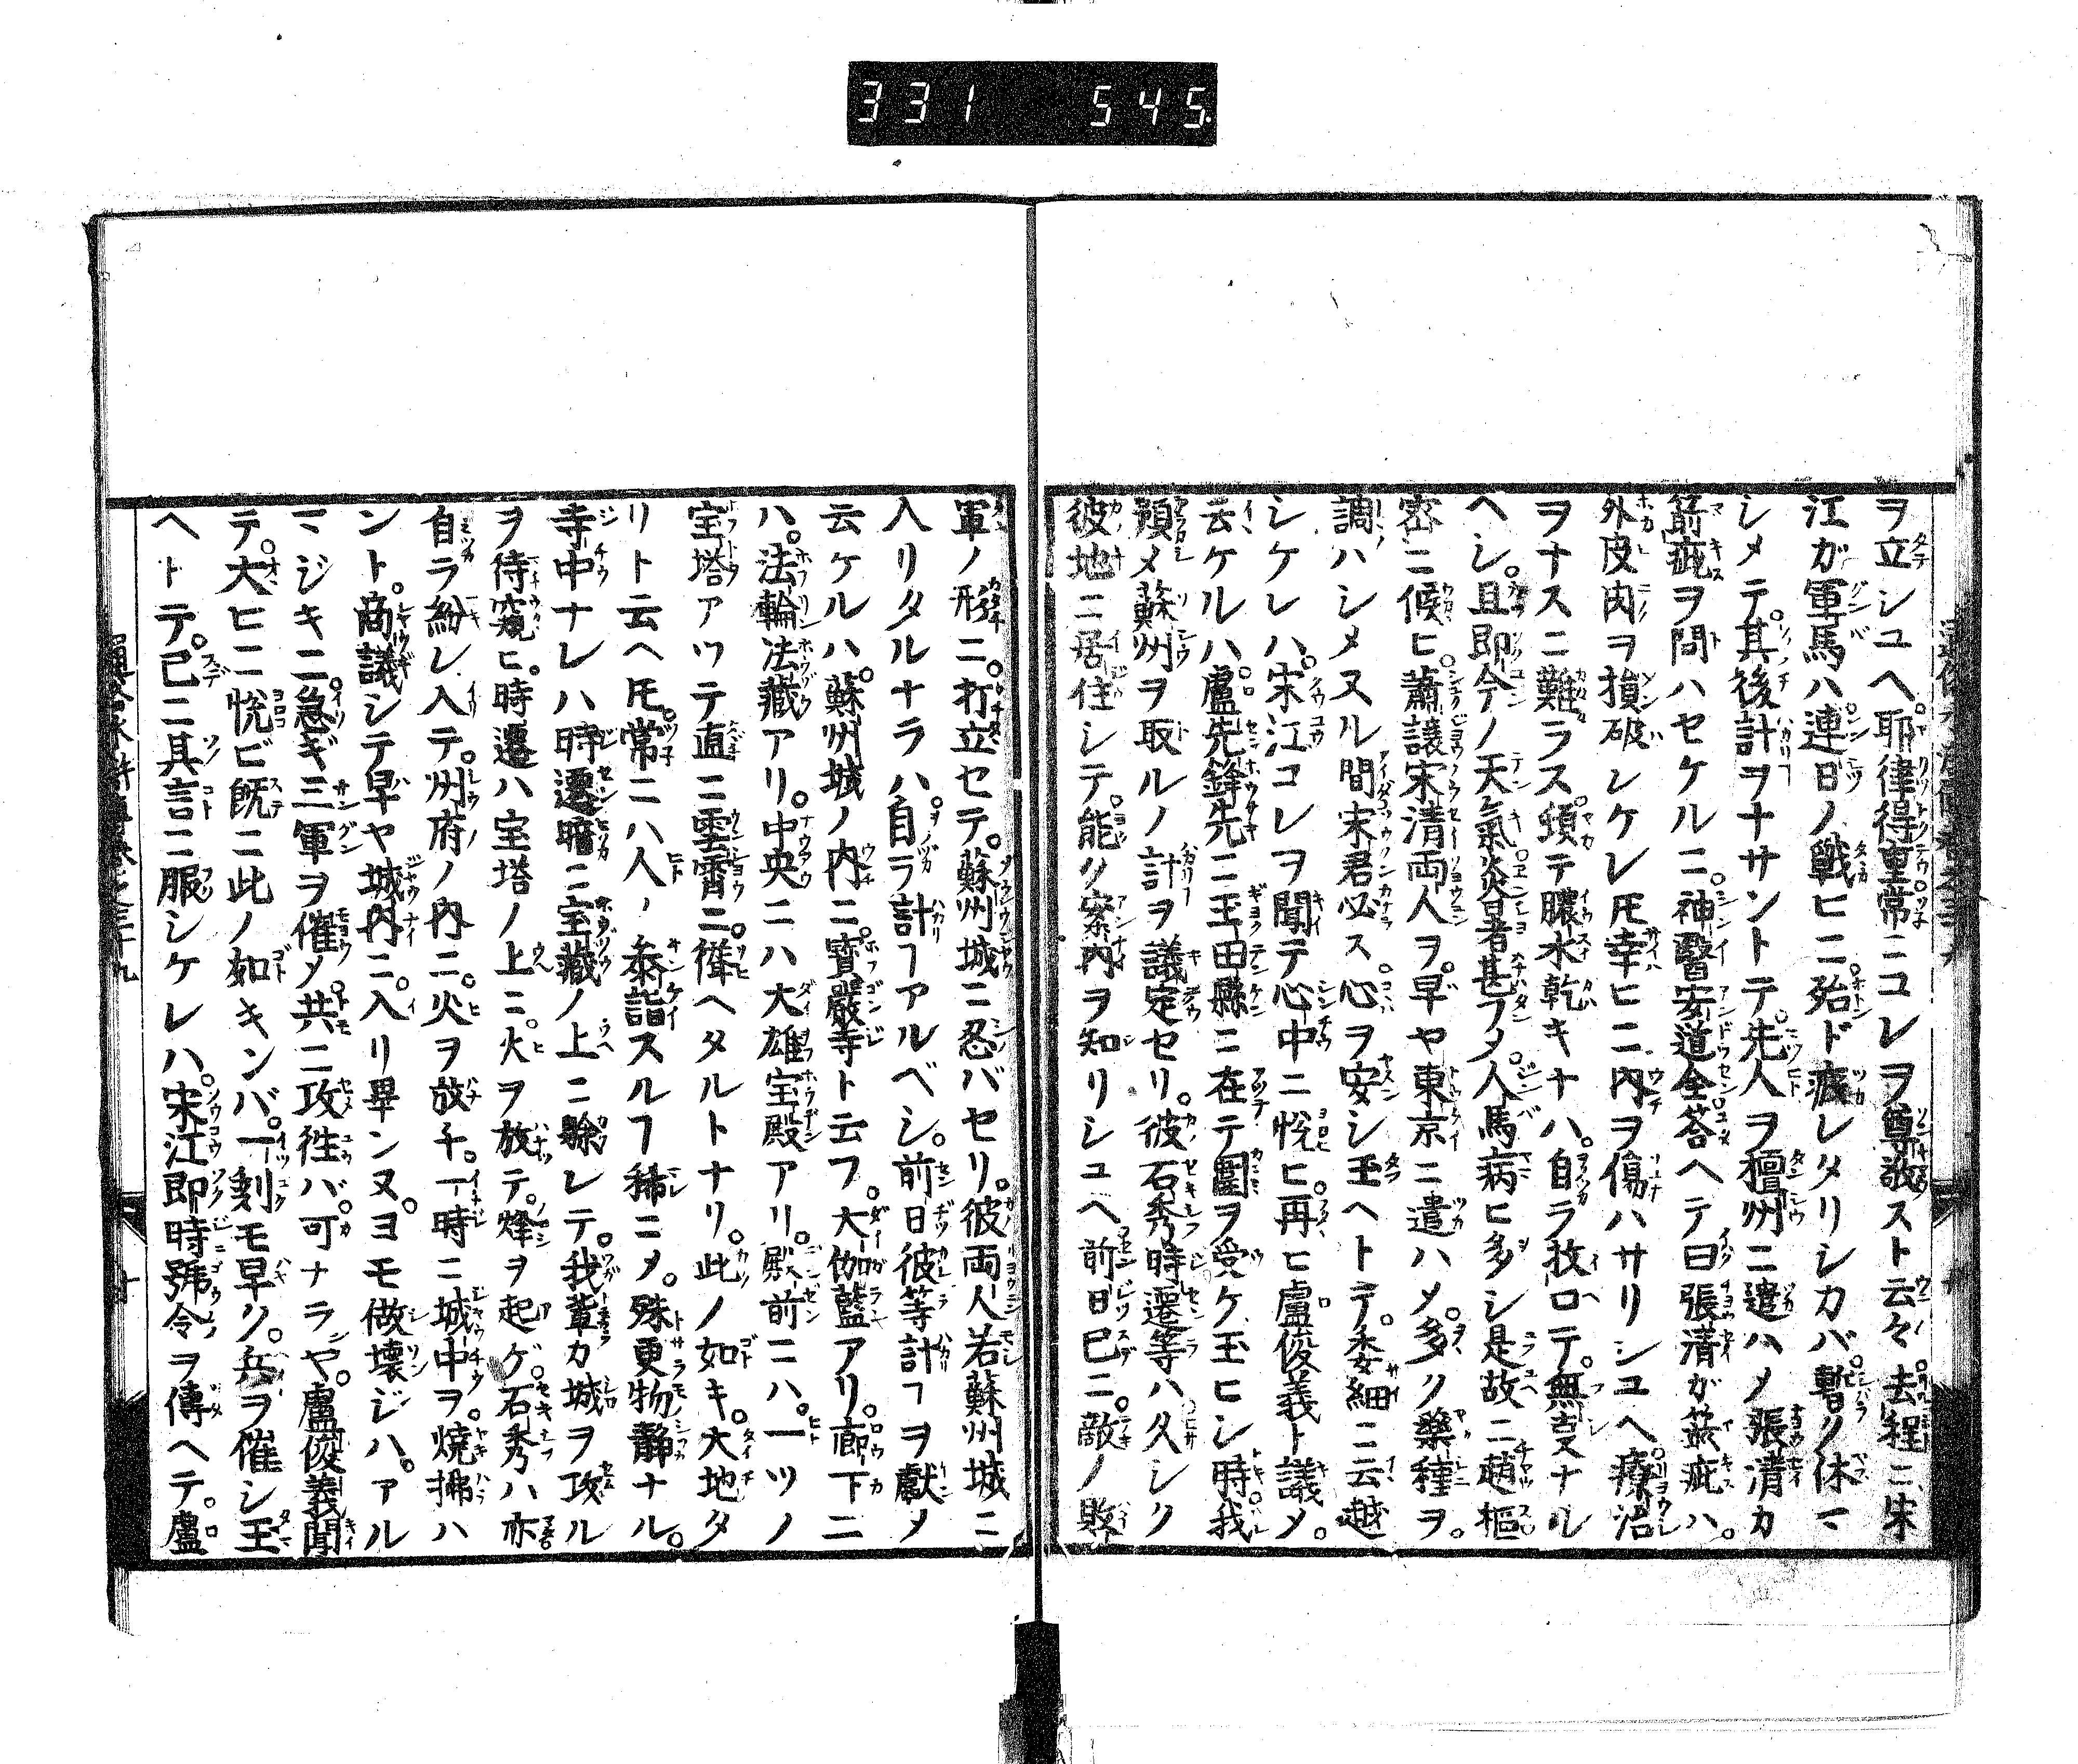 331 545
ヲ立シユヘ。耶律得重常ニコレヲ尊敬スト云々。去程ニ宋
江ガ軍馬ハ連日ノ戰ヒニ。殆ド疲レタリシカバ。暫ク休マ
シメテ。其後計ヲナサントテ。先人ヲ檀州ニ遣ハメ張清カ
箭疵ヲ問ハセケルニ。神醫安道全答ヘテ曰張清ガ箭疵ハ。
外皮肉ヲ損破シケレ𪜈幸ヒニ内ヲ傷ハサリシユヘ。療治
ヲナスニ難ラス。頓テ膿水乾キナハ。自ラ抜ロテ。無㕝ナル
ヘシ。且即今ノ天氣炎暑甚フメ。人馬病ヒ多シ是故ニ趙樞
密ニ候ヒ。蕭譲宋清両人ヲ。早ヤ東京ニ遣ハメ。多ク藥種ヲ。
調ハシメヌル間宋君必ス。心ヲ安シ玉ヘトテ。委細ニ云越
シケレハ。宋江コレヲ聞テ心中ニ悦ヒ。再ヒ盧俊義ト議メ。
云ケルハ。盧先鋒先ニ玉田縣ニ在テ圍ヲ受ケ玉ヒシ時。我
頻メ蘇州ヲ取ルノ計ヲ議定セリ。彼石秀時遷等ハ久シク
彼地ニ居住シテ。能ク案内ヲ知リシユヘ前日已ニ。敵ノ敗
軍ノ形ニ。打立セテ。蘇州城ニ忍バセリ。彼両人若蘇州城ニ
入リタルナラハ。自ラ計ヿアルベシ。前日彼等計ヿヲ獻メ
云ケルハ。蘇州城ノ内ニ。寳嚴寺ト云フ。大伽藍アリ。廊下ニ
ハ。法輪法藏アリ。中央ニハ大雄宝殿アリ。殿前ニハ。一ツノ
宝塔アツテ直ニ雲霄ニ。聳ヘタルトナリ。此ノ如キ。大地タ
リト云ヘ𪜈。常ニハ人ノ參詣スルヿ稀ニメ。殊更物靜ナル。
寺中ナレハ時遷暗ニ宝藏ノ上ニ躱レテ。我輩カ城ヲ攻ル
ヲ待窺ヒ。時遷ハ宝塔ノ上ニ。火ヲ放テ。烽ヲ起ゲ。石秀ハ亦
自ラ紛レ入テ。州府ノ内ニ。火ヲ放チ。一時ニ城中ヲ。燒拂ハ
ント。商議シテ早ヤ城内ニ。入リ畢ンヌ。ヨモ做壊ジハ。アル
マジキニ。急ギ三軍ヲ催メ。共ニ攻徃バ。可ナランヤ。盧俊義聞
テ。大ヒニ悦ビ既ニ此ノ如キンバ。一刻モ早ク。兵ヲ催シ玉
ヘトテ。已ニ其言ニ服シケレハ。宋江即時號令ヲ傳ヘテ。盧